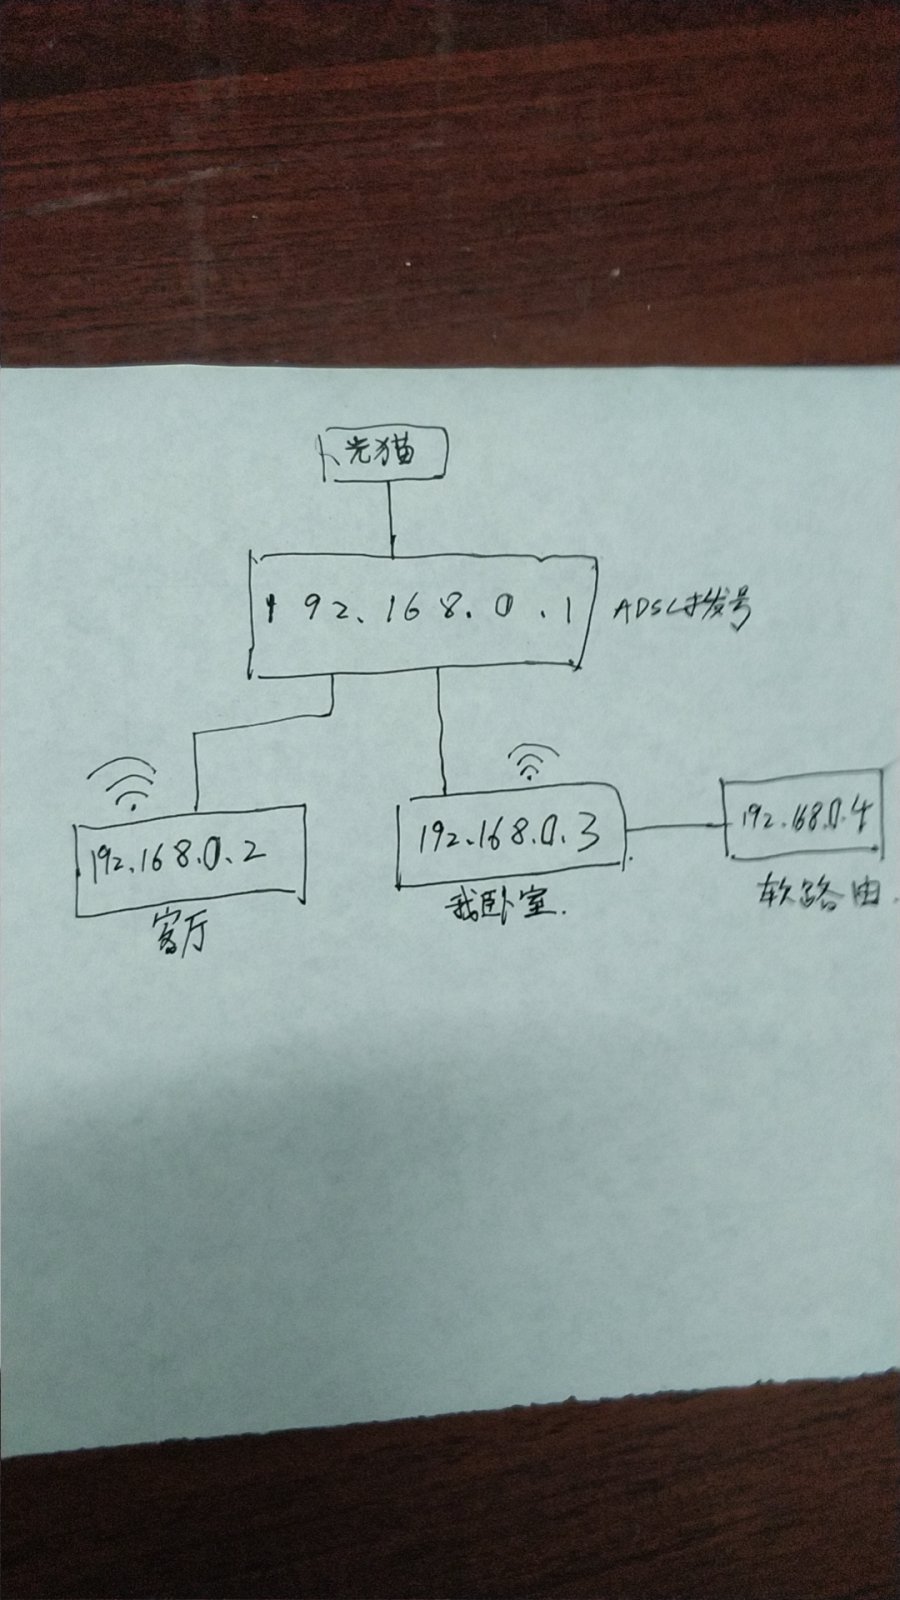 光猫
192.168.0.1
ADSL拨号
192.168.0.2
客厅
192.168.0.3
我卧室.
192.168.0.4
软路由.